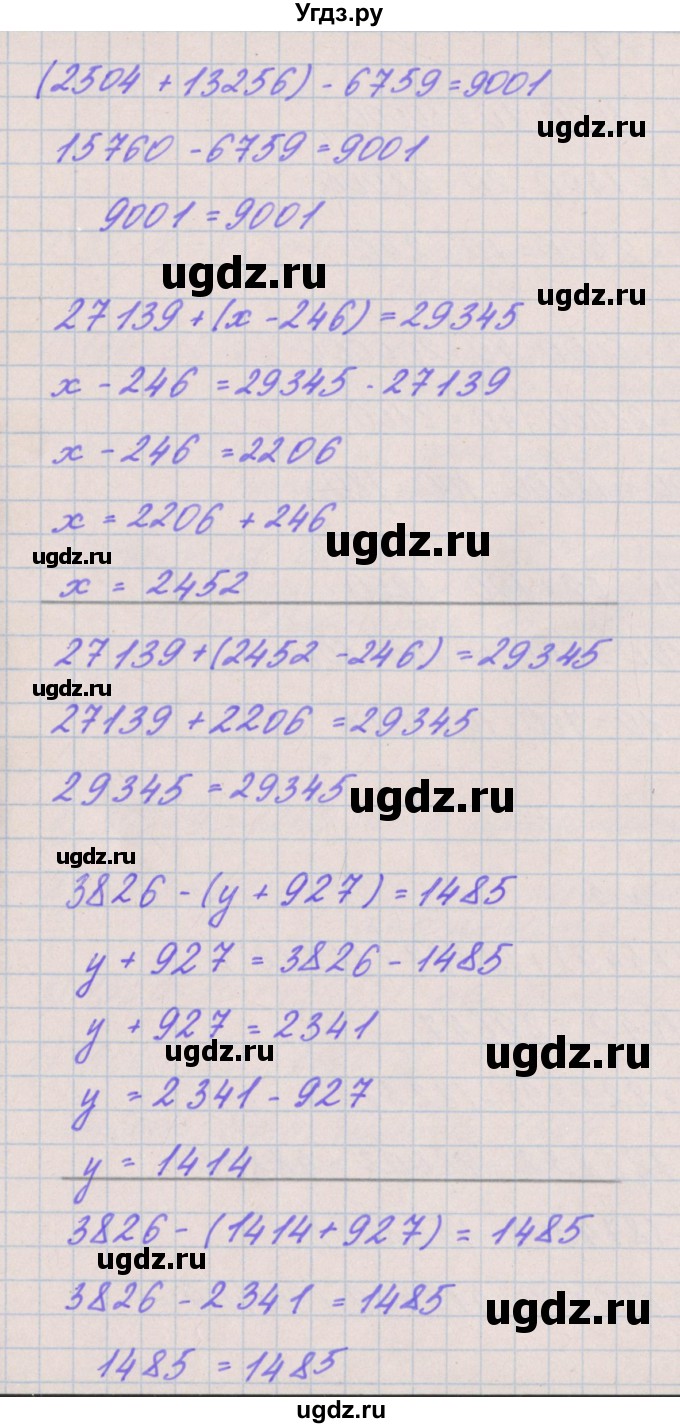 Угдз.ру
(2504 + 13256) - 6759 = 9001
ugdz.ru
15760 - 6759 = 9001
9001 = 9001
ugdz.ru
ugdz.ru
27139 + (x - 246) = 29345
x - 246 = 29345 - 27139
x - 246 = 2206
x = 2206 + 246
ugdz.ru
ugdz.ru
x = 2452
27139 + (2452 - 246) = 29345
ugdz.ru
27139 + 2206 = 29345
29345 = 29345
ugdz.ru
ugdz.ru
3826 - (y + 927) = 1485
y + 927 = 3826 - 1485
y + 927 = 2341
ugdz.ru
ugdz.ru
y = 2341 - 927
y = 1414
3826 - (1414 + 927) = 1485
ugdz.ru
3826 - 2341 = 1485
ugdz.ru
1485 = 1485
ugdz.ru